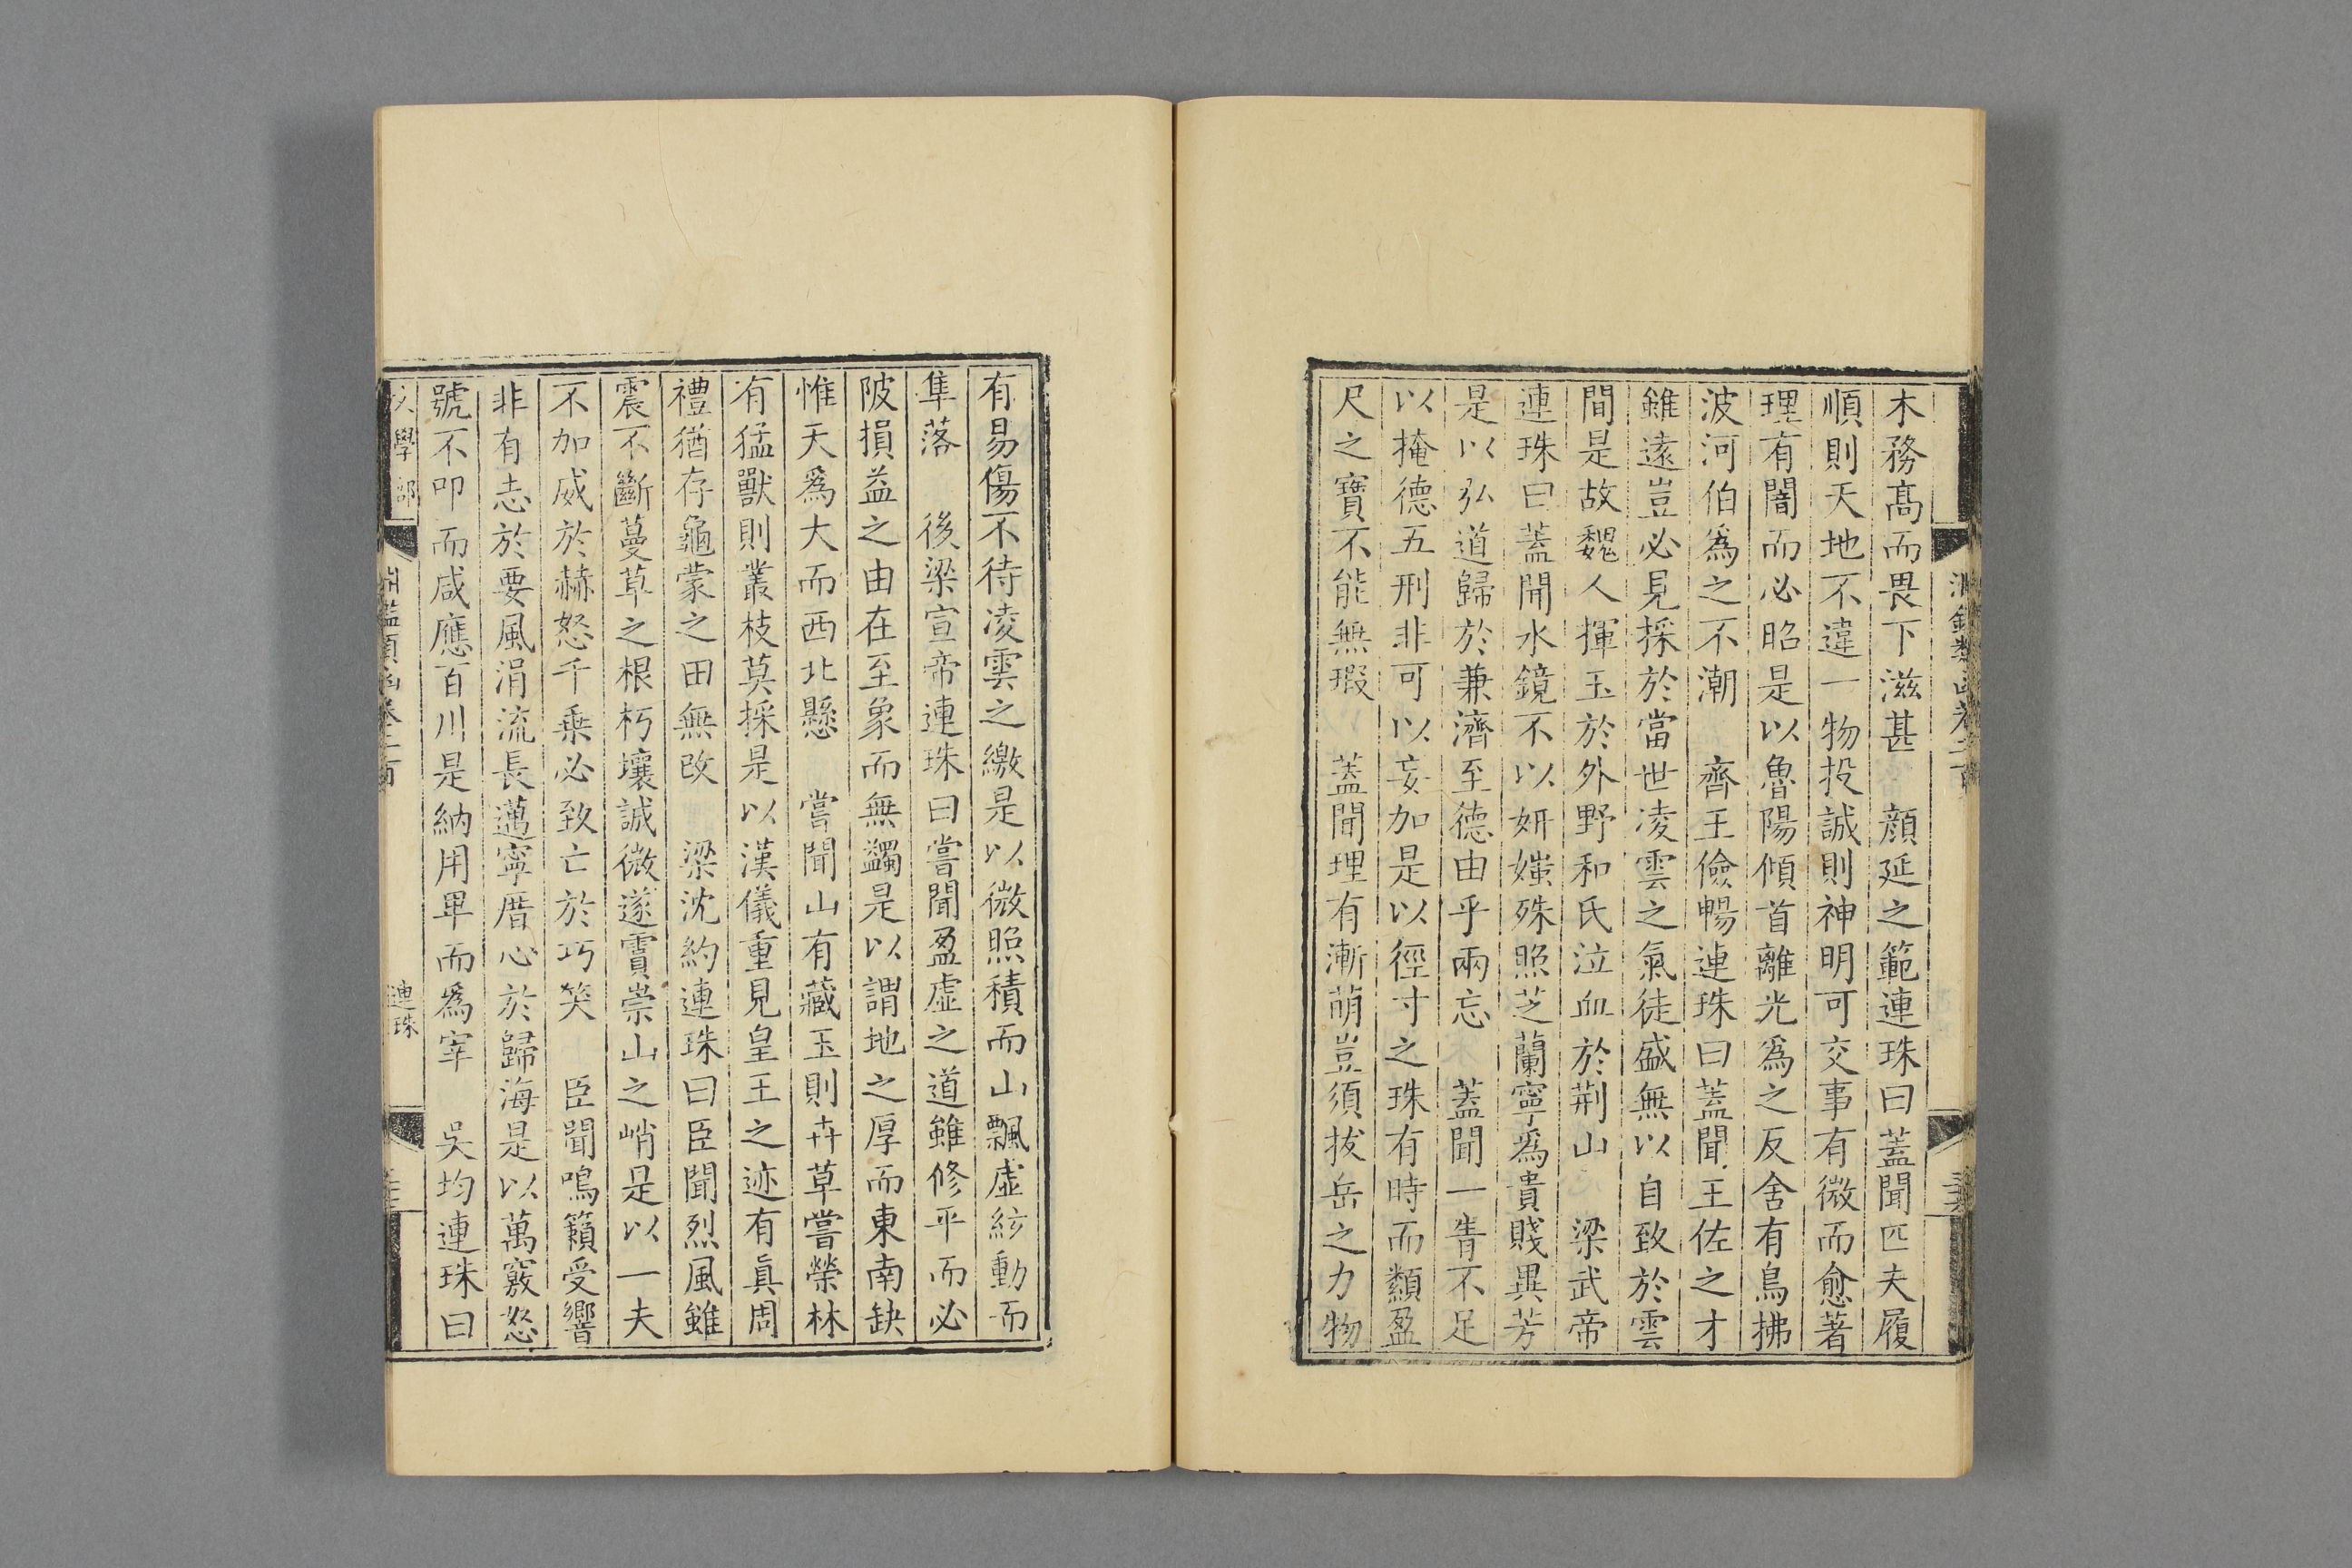 木務髙而畏下滋甚　顔延之範連珠曰蓋聞匹夫履
順則天地不違一物投誠則神明可交事有微而愈著
理有闇而必昭是以魯陽傾首離光爲之反舍有鳥拂
波河伯爲之不潮　齊王儉暢連珠曰蓋聞王佐之才
雖遠豈必見採於當世凌雲之氣徒盛無以自致於雲
間是故魏人揮玉於外野和氏泣血於荆山　梁武帝
連珠曰蓋聞水鏡不以妍媸殊照芝蘭寧爲貴賤異芳
是以弘道歸於兼濟至德由乎兩忘　蓋聞一眚不足
以掩德五刑非可以妄加是以徑寸之珠有時而纇盈
尺之寶不能無瑕　蓋聞理有漸萌豈須拔岳之力物
有易傷不待凌雲之繳是以微照積而山飄虛絃動而
隼落　後梁宣帝連珠曰嘗聞盈虛之道雖修平而必
陂損益之由在至象而無蠲是以謂地之厚而東南缺
惟天爲大而西北懸　嘗聞山有藏玉則卉草嘗榮林
有猛獸則叢枝莫採是以漢儀重見皇王之迹有眞周
禮猶存龜蒙之田無改　梁沈約連珠曰臣聞烈風雖
震不斷蔓草之根朽壤誠微遂霣崇山之峭是以一夫
不加威於赫怒千乗必致亡於巧笑　臣聞鳴籟受響
非有志於要風涓流長邁寧厝心於歸海是以萬竅怒
號不叩而咸應百川是納用卑而爲宰　吳均連珠曰
連珠